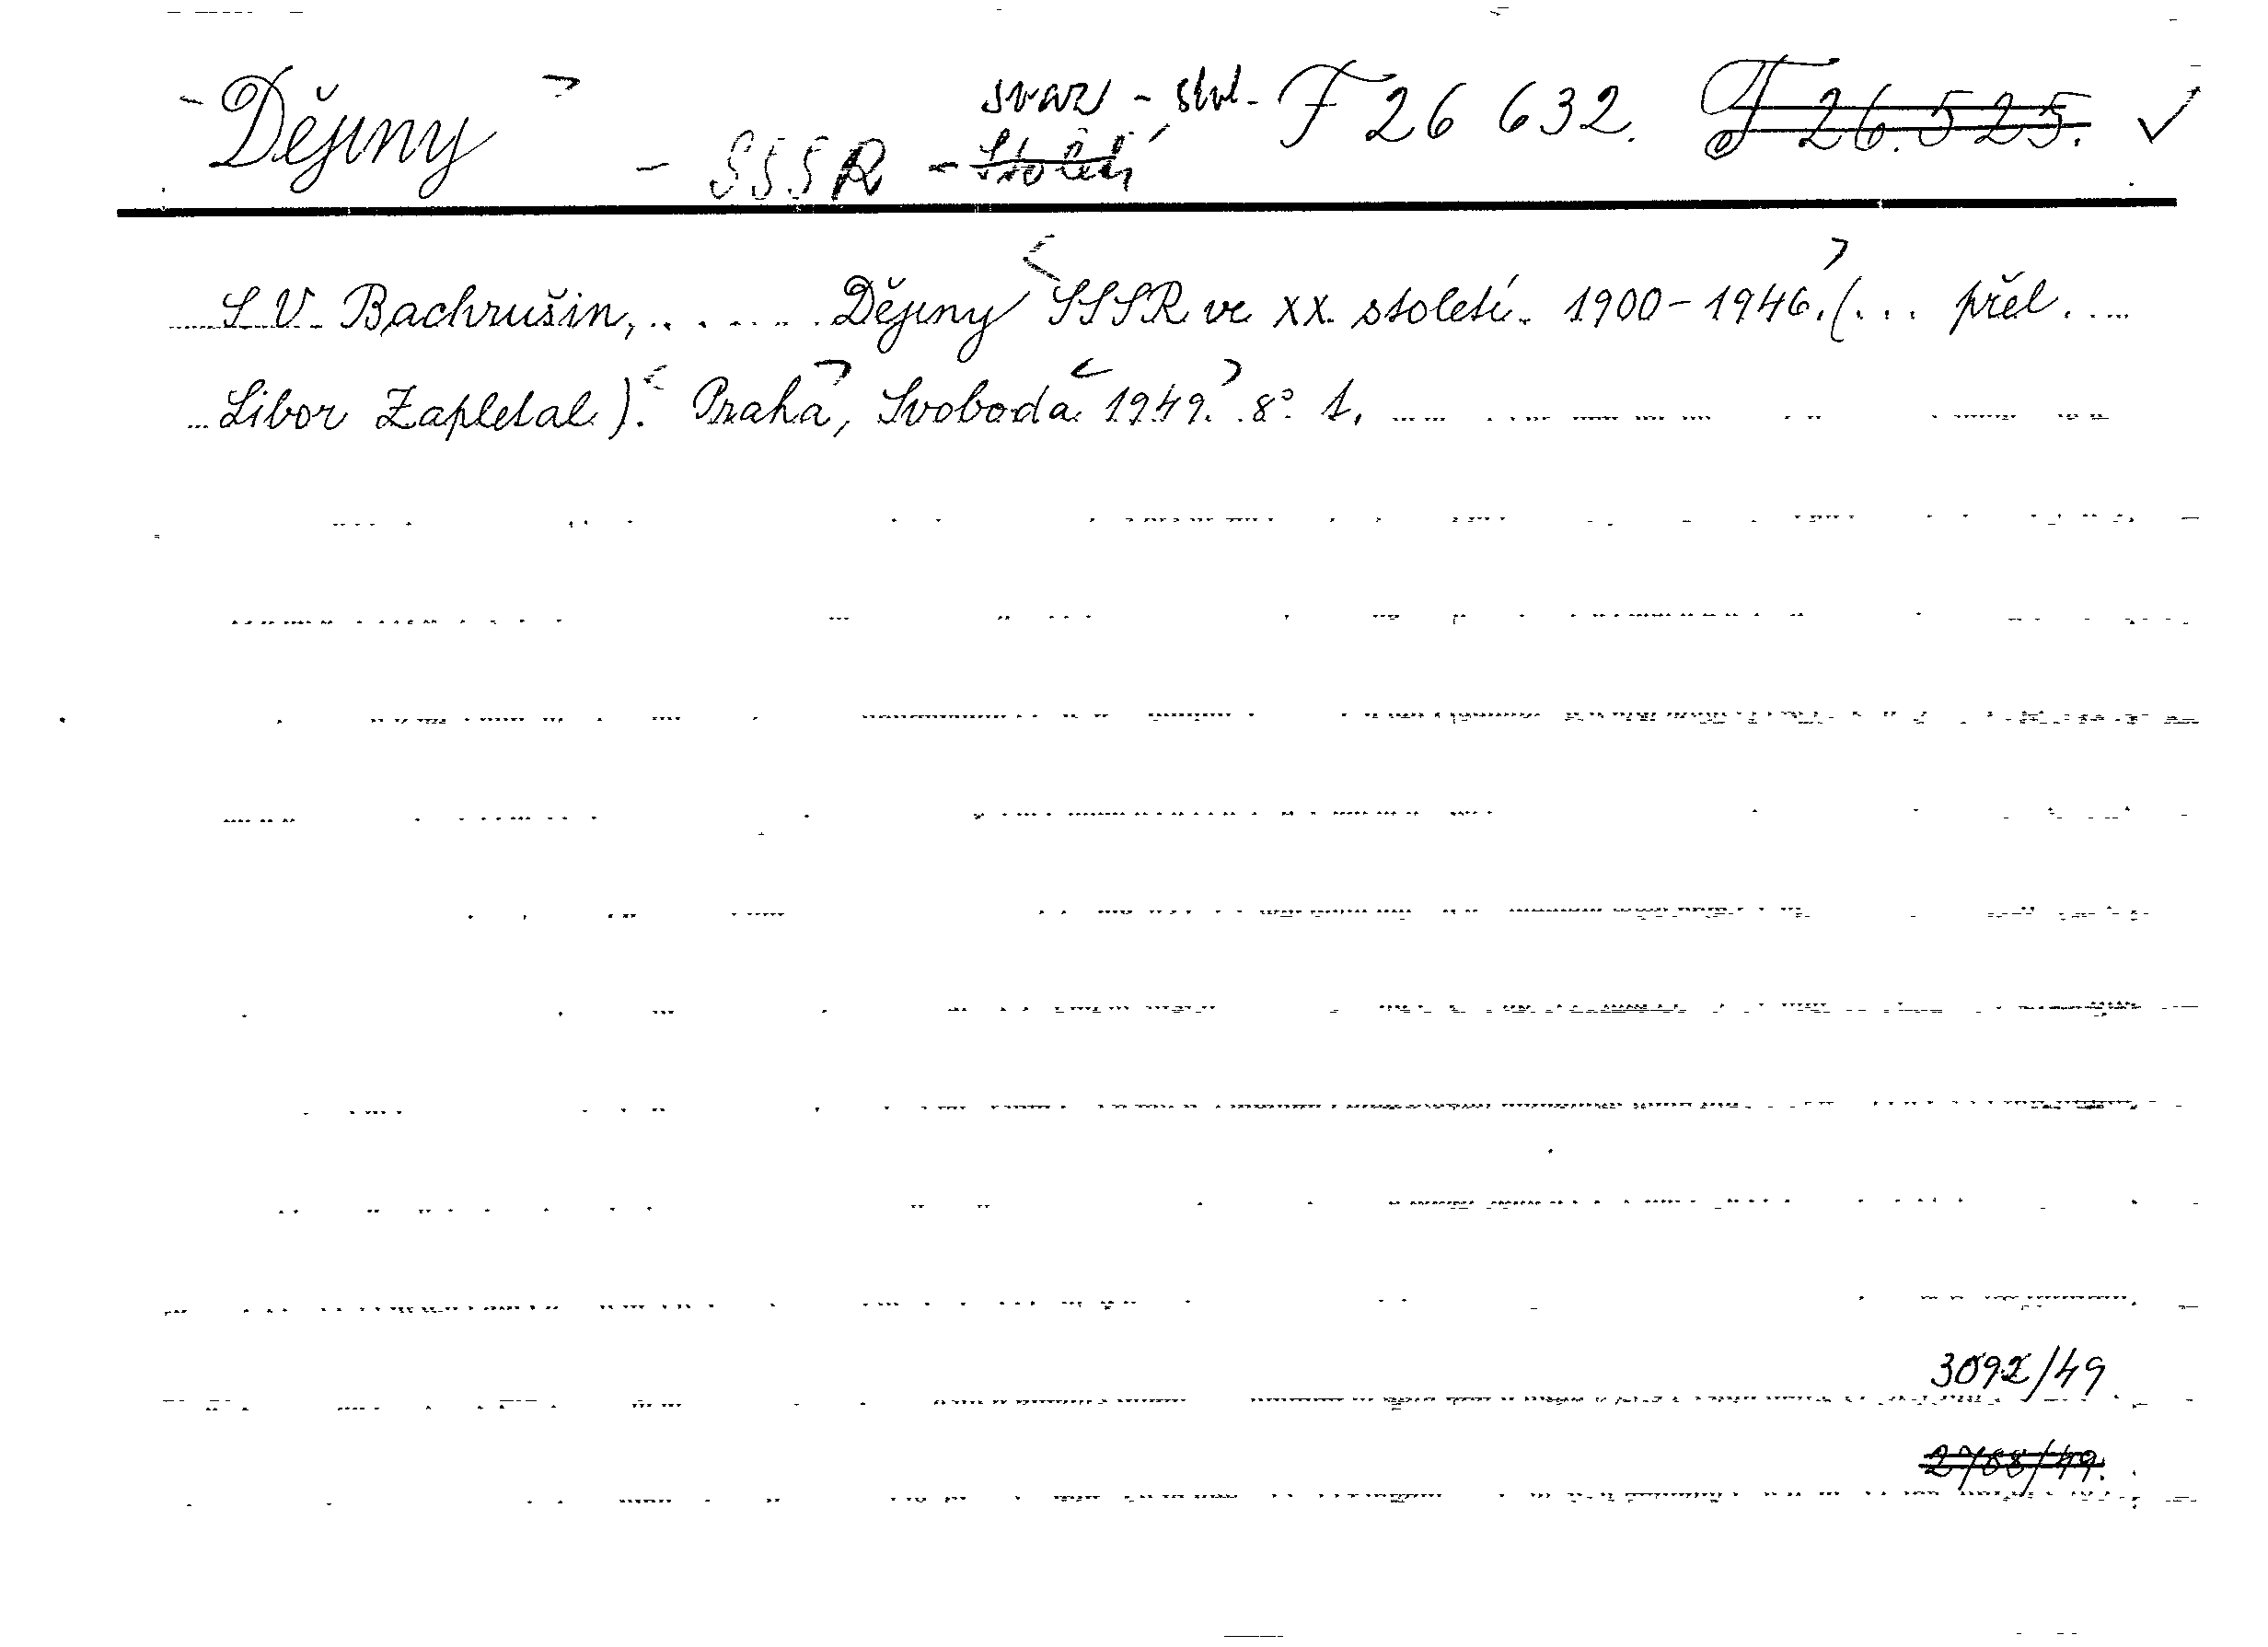 Dějiny - SSSR - Století svaz - F 26 632. F 26.525.
S V Bachrušin, ....... Dějiny SSSR ve XX. století. 1900-1946. (... přel. ...
Libor Zapletal). Praha, Svoboda 1949. 8°. 1.
3092/49
2788/49.